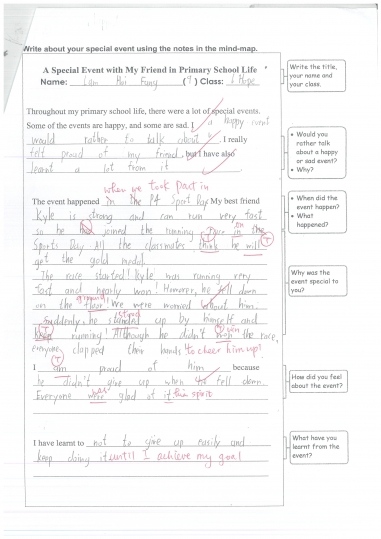 Write about your special event using the notes in the mind-map.
A Special Event with My Friend in Primary School Life
Name: Lam Hoi Fung (9) Class: 6 Hope
Throughout my primary school life, there were a lot of special events.
Some of the events are happy, and some are sad. I a happy event
would rather to talk about. I really
felt proud of my friend, but I have also
learnt a lot from it
when we took part in
The event happened in the P4 Sport Day My best friend
Kyle is strong and can run very fast
so he joined the running race in the on
Sports Day. All the classmates think he will
get the gold medal.
The race started! Kyle was running very
fast and nearly won! However, he fell down
on the ground! We were worried about him.
Suddenly, he stand up by himself and stood
keep running! Although he didn't won the race, win
everyone clapped their hands to cheer him up!
I am proud of him because
he didn't give up when he fell down.
Everyone were glad of it his spirit was
I have learnt to not to give up easily and
keep doing it until I achieve my goal
Write the title, your name and your class.
Would you rather talk about a happy or sad event?
Why?
When did the event happen?
What happened?
Why was the event special to you?
How did you feel about the event?
What have you learnt from the event?